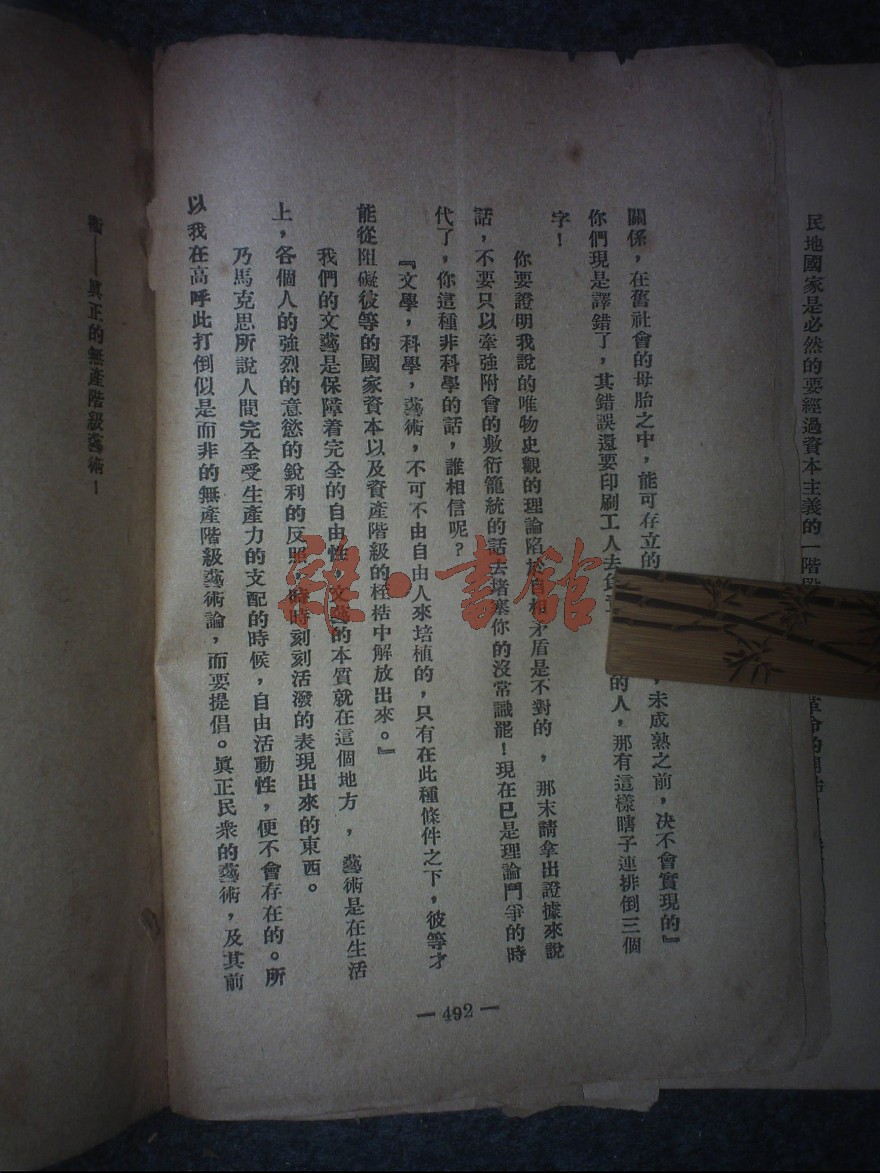 民地國家是必然的要經過資本主義的一階段
關係，在舊社會的母胎之中，能可存立的，未成熟之前，决不會實現的』
你們現是譯錯了，其錯誤還要印刷工人去負的人，那有這樣瞎子連排倒三個
字！
你要證明我說的唯物史觀的理論陷於自相矛盾是不對的，那末請拿出證據來說
話，不要只以牽強附會的敷衍籠統的話去堵塞你的沒常識罷！現在已是理論鬥爭的時
代了，你這種非科學的話，誰相信呢？
『文學，科學，藝術，不可不由自由人來培植的，只有在此種條件之下，彼等才
能從阻礙彼等的國家資本以及資產階級的桎梏中解放出來。』
我們的文藝是保障着完全的自由性，文藝的本質就在這個地方，藝術是在生活
上，各個人的強烈的意慾的銳利的反照，時時刻刻活潑的表現出來的東西。
乃馬克思所說人間完全受生產力的支配的時候，自由活動性，便不會存在的。所
以我在高呼此打倒似是而非的無產階級藝術論，而要提倡。眞正民衆的藝術，及其前
衛——眞正的無產階級藝術！
— 492 —
雜·書館